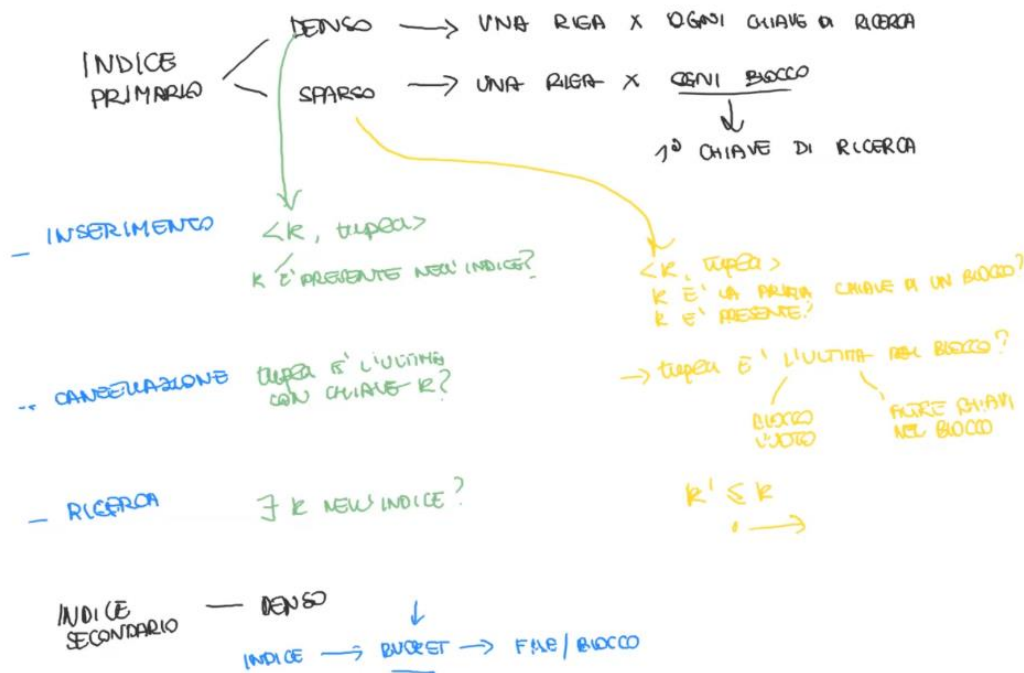 INDICE PRIMARIO
DENSO → UNA RIGA X OGNI CHIAVE DI RICERCA
SPARSO → UNA RIGA X OGNI BLOCCO
1° CHIAVE DI RICERCA
- INSERIMENTO
<K, tupla>
K E' PRESENTE NELL'INDICE?
<K, tupla>
K E' LA PRIMA CHIAVE DI UN BLOCCO?
K E' PRESENTE?
- CANCELLAZIONE
tupla E' L'ULTIMA
CON CHIAVE K?
→ tupla E' L'ULTIMA DEL BLOCCO?
BLOCCO
VUOTO
ALTRE CHIAVI
NEL BLOCCO
- RICERCA
∃ K NELL'INDICE?
K' ≤ K
INDICE
SECONDARIO — DENSO
INDICE → BUCKET → FILE/BLOCCO